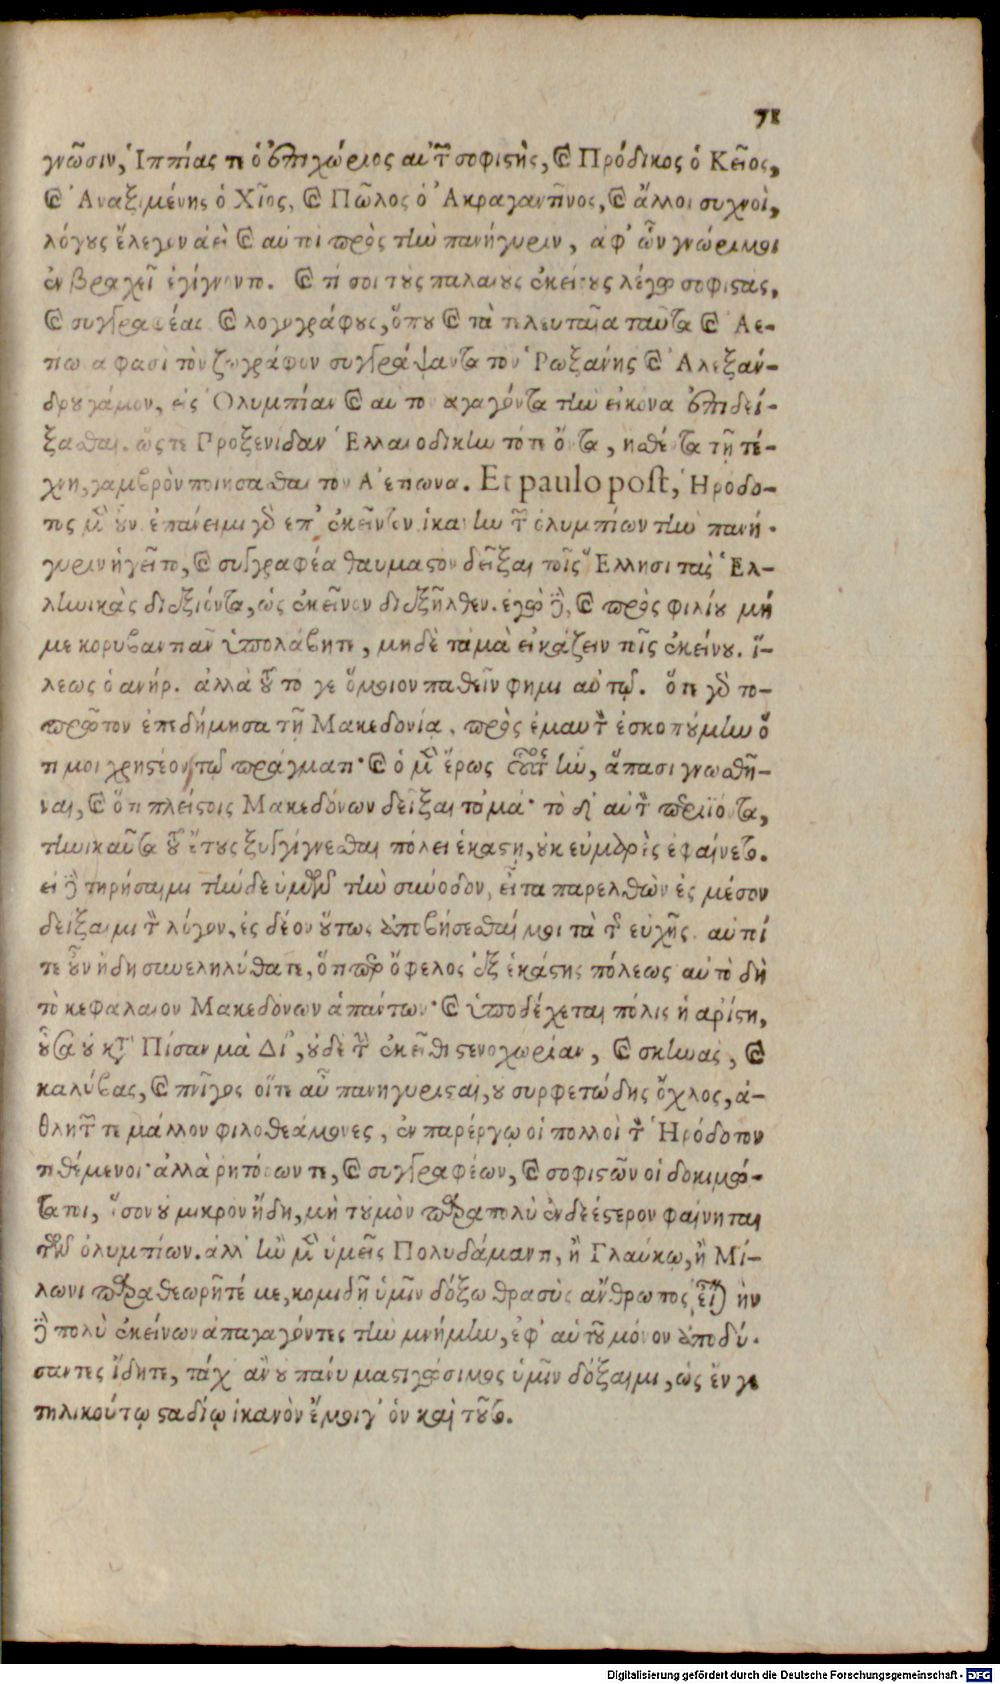 71
γνῶσιν, Ἱππίας τε ὁ ἐπιχώριος αὐτῶν σοφιστὴς, καὶ Πρόδικος ὁ Κεῖος,
καὶ Ἀναξιμένης ὁ Χῖος, καὶ Πῶλος ὁ Ἀκραγαντῖνος, καὶ ἄλλοι συχνοὶ,
λόγους ἔλεγον ἀεὶ καὶ αὐτοὶ πρὸς τὴν πανήγυριν, ἀφ' ὧν γνώριμοι
ἐν βραχεῖ ἐγίγνοντο. καὶ τί σοι τοὺς παλαιοὺς ἐκείνους λέγω σοφιστὰς,
καὶ συγγραφέας καὶ λογογράφους, ὅπου καὶ τὰ τελευταῖα ταῦτα καὶ Ἀε-
τίωνα φασὶ τὸν ζωγράφον συγγράψαντα τὸν Ῥωξάνης καὶ Ἀλεξάν-
δρου γάμον, εἰς Ὀλυμπίαν καὶ αὐτὸν ἀγαγόντα τὴν εἰκόνα ἐπιδεί-
ξασθαι. ὥστε Προξενίδαν Ἑλλανοδίκην τότε ὄντα, ἡσθέντα τῇ τέ-
χνῃ, γαμβρὸν ποιήσασθαι τὸν Ἀετίωνα. Et paulo post, Ἡρόδο-
τος μὲν οὖν ἐπάνειμι γὰρ ἐπ' ἐκεῖνον ἱκανὴν τῶν ὀλυμπίων τὴν πανή-
γυριν ἡγεῖτο, καὶ συγγραφέα θαυμαστὸν δεῖξαι τοῖς Ἕλλησι τὰς Ἑλ-
ληνικὰς διεξιόντα, ὡς ἐκεῖνον διεξῆλθεν. ἐγὼ δὲ, καὶ πρὸς φιλίου μή
με κορυβαντιᾶν ὑπολάβητε, μηδὲ τἀμὰ εἰκάζειν τοῖς ἐκείνου. ἵ-
λεως ὁ ἀνήρ. ἀλλὰ τοῦτό γε ὅμοιον παθεῖν φημι αὐτῷ. ὅτε γὰρ το-
πρῶτον ἐπεδήμησα τῇ Μακεδονίᾳ, πρὸς ἐμαυτὸν ἐσκοπούμην ὅ
τι μοι χρηστέον τῷ πράγματι· καὶ ὁ μὲν ἔρως οὗτος ἦν, ἅπασι γνωσθῆ-
ναι, καὶ ὅτι πλείστοις Μακεδόνων δεῖξαι τοὐμά· τὸ δ' αὐτὸν περιϊόντα,
τηνικαῦτα τοῦ ἔτους ξυγγίγνεσθαι πόλει ἑκάστῃ, οὐκ εὐμαρὲς ἐφαίνετο.
εἰ δὲ τηρήσαιμι τήνδε ὑμῶν τὴν σύνοδον, εἶτα παρελθὼν ἐς μέσον
δείξαιμι τὸν λόγον, ἐς δέον οὕτως ἀποβήσεσθαί μοι τὰ τῆς εὐχῆς. αὐτοί
τε οὖν ἤδη συνεληλύθατε, ὅτι περ ὄφελος ἐξ ἑκάστης πόλεως αὐτὸ δὴ
τὸ κεφάλαιον Μακεδόνων ἁπάντων· καὶ ὑποδέχεται πόλις ἡ ἀρίστη,
οὖσα οὐ κατὰ Πίσαν μὰ Δί', οὐδὲ τὴν ἐκεῖθι στενοχωρίαν, καὶ σκηνὰς, καὶ
καλύβας, καὶ πνῖγος οἵτε αὖ πανηγυρισταὶ, οὐ συρφετώδης ὄχλος, ἀ-
θλητῶν τε μᾶλλον φιλοθεάμονες, ἐν παρέργῳ οἱ πολλοὶ τὸν Ἡρόδοτον
τιθέμενοι· ἀλλὰ ῥητόρων τε, καὶ συγγραφέων, καὶ σοφιστῶν οἱ δοκιμώ-
τατοι, ὅσον οὐ μικρὸν ἤδη, μὴ τοὐμὸν παρὰ πολὺ ἐνδεέστερον φαίνηται
τῶν ὀλυμπίων. ἀλλ' ἢν μὲν ὑμεῖς Πολυδάμαντι, ἢ Γλαύκῳ, ἢ Μί-
λωνι παραθεωρῆτέ με, κομιδῇ ὑμῖν δόξω θρασὺς ἄνθρωπος εἶναι ἢν
δὲ πολὺ ἐκείνων ἀπαγαγόντες τὴν μνήμην, ἐφ' αὑτοῦ μόνον ἀποδύ-
σαντες ἴδητε, τάχ' ἂν οὐ πάνυ μαστιγώσιμος ὑμῖν δόξαιμι, ὡς ἔν γε
τηλικούτῳ σταδίῳ ἱκανὸν ἔμοιγ' ὂν καὶ τοῦτο.
Digitalisierung gefördert durch die Deutsche Forschungsgemeinschaft - DFG